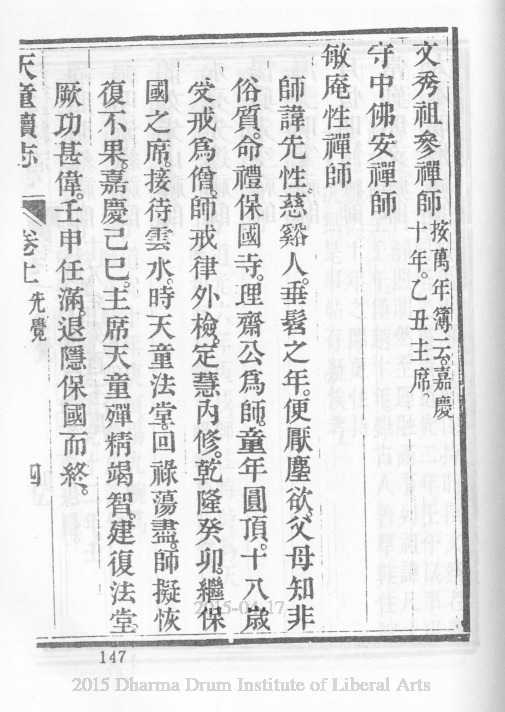 文秀祖參禪師 按萬年簿云。嘉慶十年。乙丑主席。
守中佛安禪師
敏庵性禪師
師諱先性慈谿人。垂髫之年。便厭塵欲。父母知非
俗質。命禮保國寺。理齋公爲師。童年圓頂。十八歲
受戒爲僧。師戒律外檢。定慧內修。乾隆癸卯。繼保
國之席。接待雲水。時天童法堂。回祿蕩盡。師擬恢
復不果。嘉慶己巳。主席天童殫精竭智。建復法堂。
厥功甚偉。壬申任滿。退隱保國而終。
天童續志 卷上 先覺 四
147
2015-04-17
2015 Dharma Drum Institute of Liberal Arts